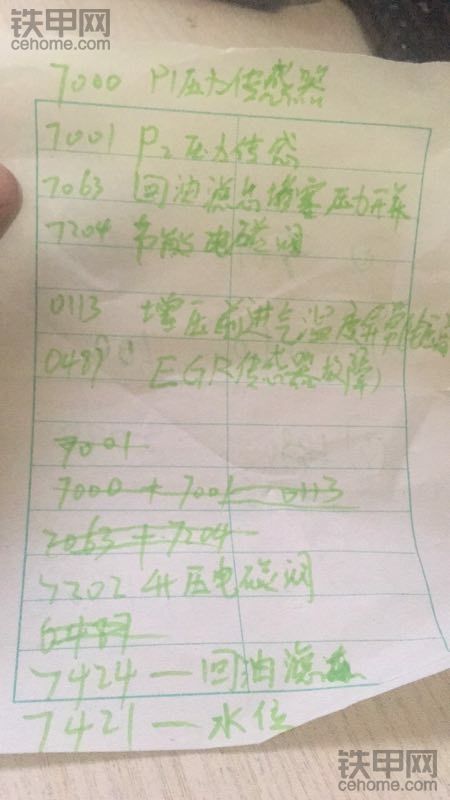 铁甲网
cehome.com
7000 P1压力传感器
7001 P2压力传感
7063 回油滤芯堵塞压力开关
7204 节能电磁阀
0113 增压前进气温度
0489 EGR传感器故障
7001
7000+7001 0113
7063+7204
7202 升压电磁阀
0489
7424—回油滤芯
7421—水位
铁甲网
cehome.com